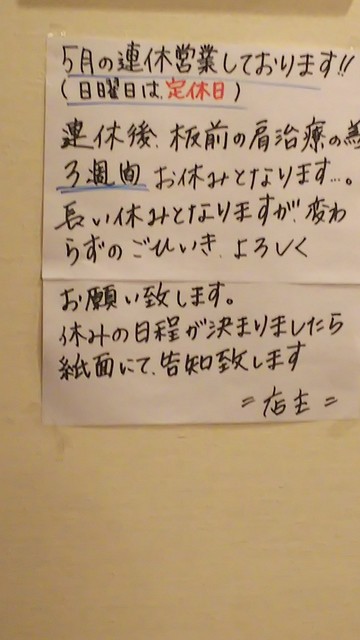 5月の連休営業しております!!
(日曜日は、定休日)
連休後、板前の肩治療の為
3週間 お休みとなります…。
長い休みとなりますが、変わ
らずのごひいき、よろしく
お願い致します。
休みの日程が決まりましたら
紙面にて、告知致します
=店主=